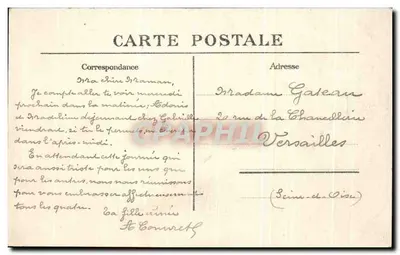 CARTE POSTALE
Correspondance
Adresse
Ma chère Maman,
Je compte aller te voir mercredi
prochain dans la matinée;
et Madeleine déjeunant chez Gabrielle
viendrait, si tu le permets,
dans l'après-midi.
En attendant cette journée qui
sera aussi triste pour les uns que
pour les autres, nous nous réunissons
pour vous embrasser affectueusement
tous les quatre.
Ta fille aimée
Madame Gateau
20 rue de la Chancellerie
Versailles
(Seine-et-Oise)